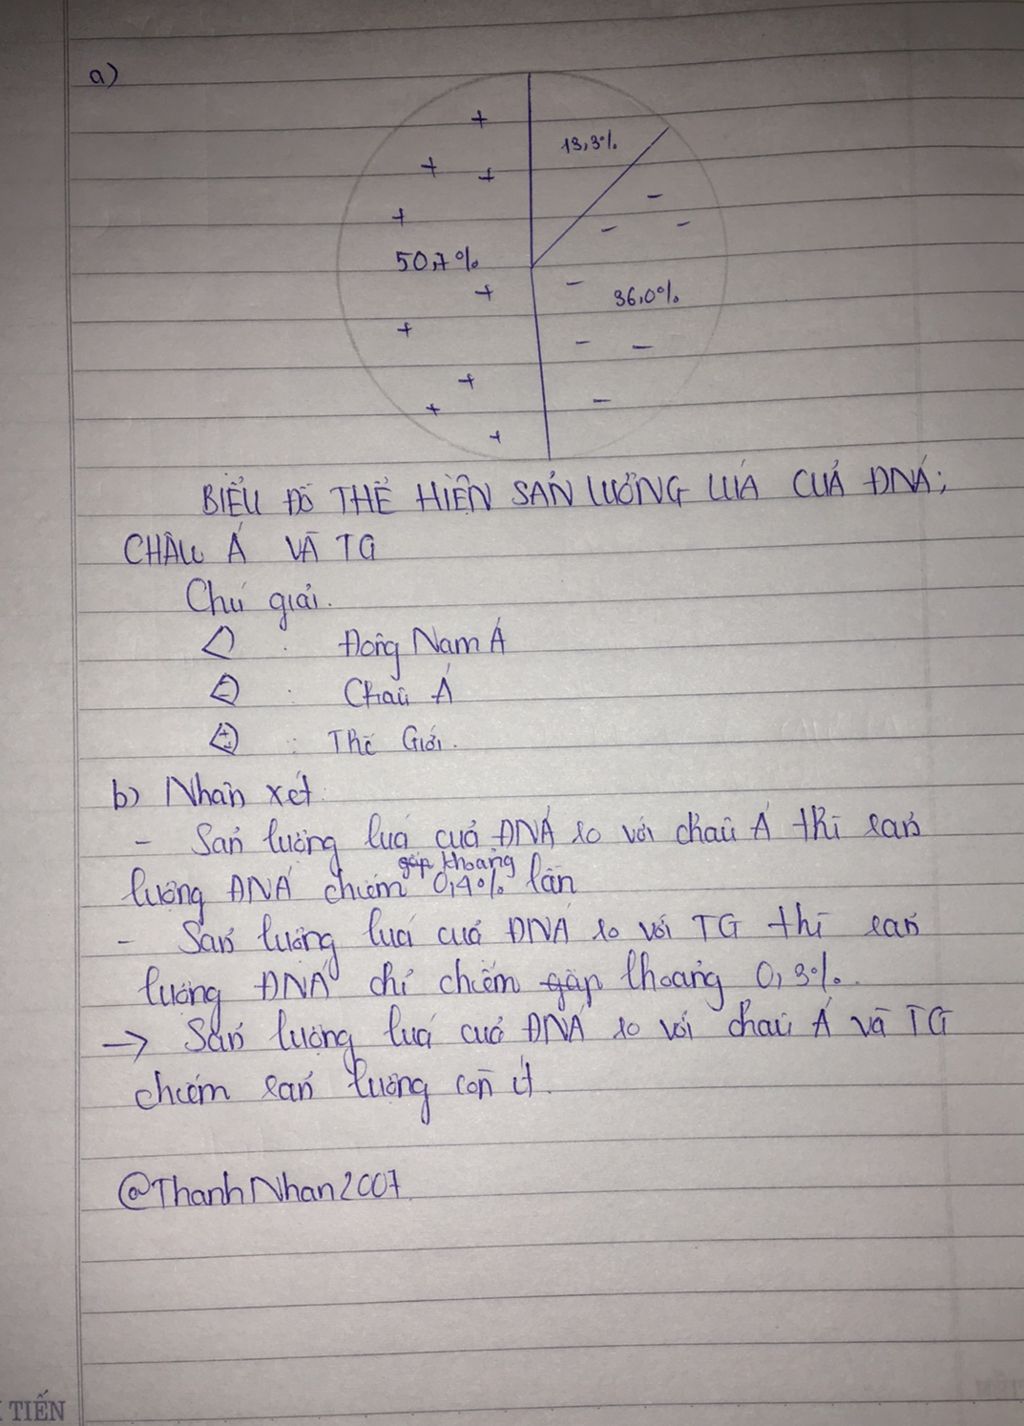 a)
13,3%
50,7%
36,0%
BIỂU ĐỒ THỂ HIỆN SẢN LƯỢNG LÚA CỦA ĐNÁ;
CHÂU Á VÀ TG
Chú giải.
: Đông Nam Á
: Châu Á
: Thế Giới.
b) Nhận xét:
- Sản lượng lúa của ĐNÁ so với châu Á thì sản
gấp khoảng
lượng ĐNÁ chiếm 0,4% lần
- Sản lượng lúa của ĐNÁ so với TG thì sản
lượng ĐNÁ chỉ chiếm gấp khoảng 0,3%.
→ Sản lượng lúa của ĐNÁ so với châu Á và TG
chiếm sản lượng còn ít.
@ThanhNhan2007
TIẾN